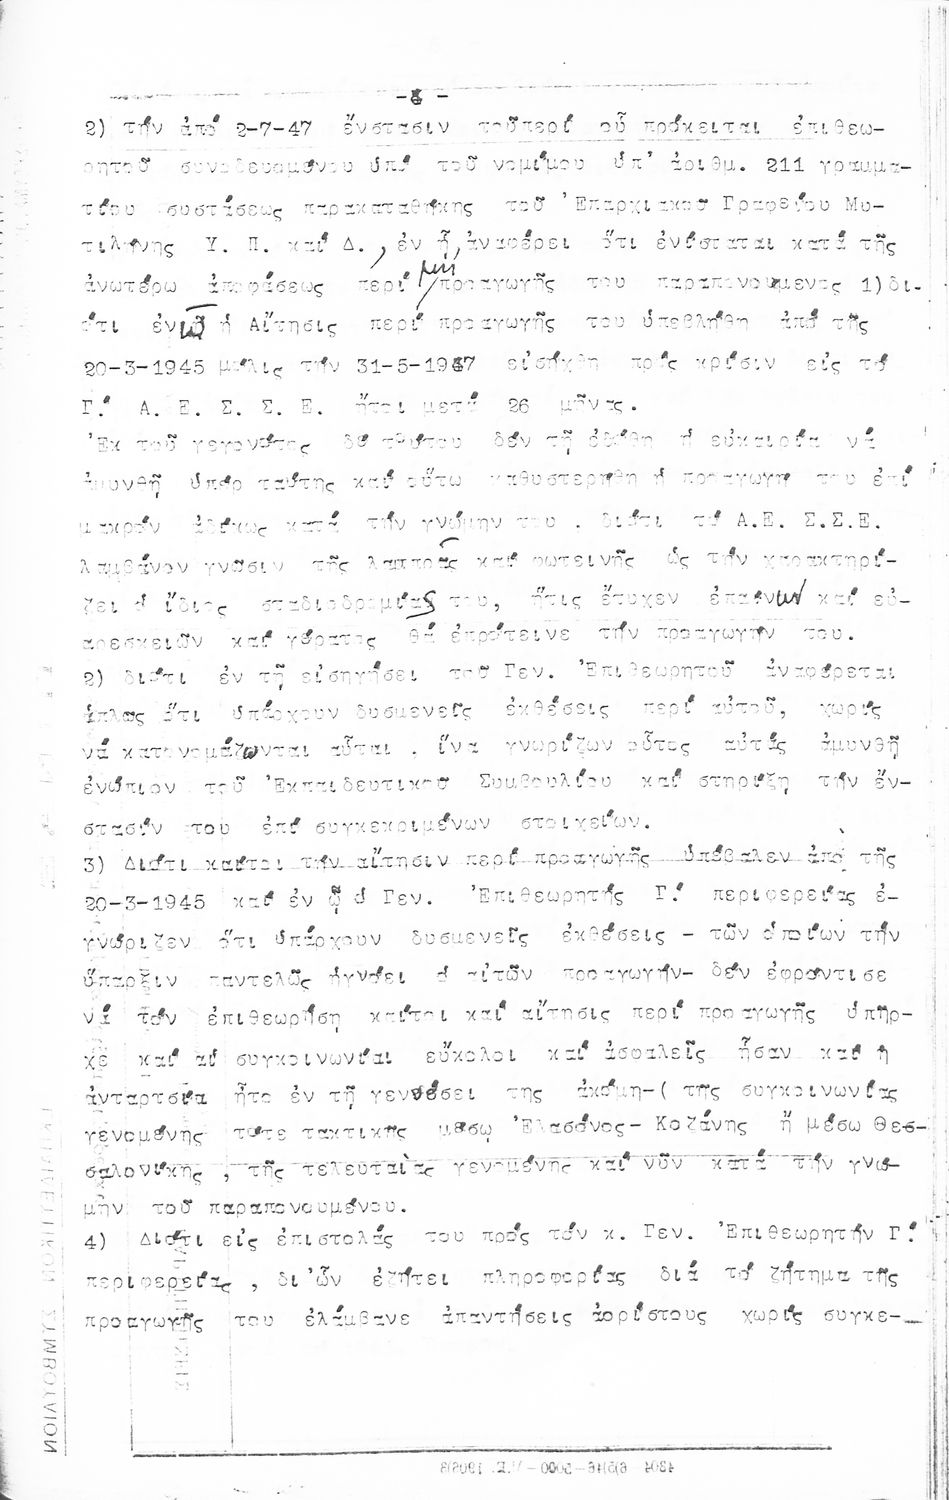 2) τήν ἀπό 2-7-47 ἔνστασιν τοῦ περί οὗ πρόκειται ἐπιθεω-
ρητοῦ συνοδευομένου ὑπό τοῦ νομίμου ὑπ' ἀριθμ. 211 γραμμα-
τίου συστάσεως παρακαταθήκης τοῦ Ἐπαρχιακοῦ Γραφείου Μυ-
τιλήνης Υ. Π. καί Δ., ἐν ᾗ, ἀναφέρει ὅτι ἐνίσταται κατά τῆς
ἀνωτέρω ἀποφάσεως περί μή προαγωγῆς του παραπονουμενος 1)δι-
ότι ἐνῶ ἡ Αἴτησις περί προαγωγῆς του ὑπεβλήθη ἀπό τῆς
20-3-1945 μόλις τήν 31-5-1947 εἰσήχθη πρός κρίσιν εἰς τό
Γ.' Α. Ε. Σ. Σ. Ε. ἤτοι μετά 26 μῆνας.
Ἐκ τοῦ γεγονότος δέ τούτου δέν τῷ ἐδόθη ἡ εὐκαιρία νά
ἀμυνθῇ ὑπέρ ταύτης καί οὕτω καθυστερήθη ἡ προαγωγή του ἐπί
μακρόν ἀδίκως κατά τήν γνώμην του . διότι τό Α.Ε. Σ.Σ.Ε.
λαμβάνον γνῶσιν τῆς λαμπρᾶς καί φωτεινῆς ὡς τήν χαρακτηρί-
ζει ὁ ἴδιος σταδιοδρομίας του, ἥτις ἔτυχεν ἐπαίνων καί εὐ-
αρεσκειῶν καί γέρατος θά ἐπρότεινε τήν προαγωγήν του.
2) διότι ἐν τῇ εἰσηγήσει τοῦ Γεν. Ἐπιθεωρητοῦ ἀναφέρεται
ἁπλῶς ὅτι ὑπάρχουν δυσμενεῖς ἐκθέσεις περί αὐτοῦ, χωρίς
νά κατονομάζωνται αὗται . ἵνα γνωρίζων οὗτος αὐτάς ἀμυνθῇ
ἐνώπιον τοῦ Ἐκπαιδευτικοῦ Συμβουλίου καί στηρίξῃ τήν ἔν-
στασίν του ἐπί συγκεκριμένων στοιχείων.
3) Διότι καίτοι τήν αἴτησιν περί προαγωγῆς ὑπέβαλεν ἀπό τῆς
20-3-1945 καί ἐν ᾧ ὁ Γεν. Ἐπιθεωρητής Γ.' περιφερείας ἐ-
γνώριζεν ὅτι ὑπάρχουν δυσμενεῖς ἐκθέσεις - τῶν ὁποίων τήν
ὕπαρξιν παντελῶς ἠγνόει ὁ αἰτῶν προαγωγήν- δέν ἐφρόντισε
νά τόν ἐπιθεωρήσῃ καίτοι καί αἴτησις περί προαγωγῆς ὑπῆρ-
χε καί αἱ συγκοινωνίαι εὔκολοι καί ἀσφαλεῖς ἦσαν καί ἡ
ἀνταρτσία ἦτο ἐν τῇ γενέσει της ἀκόμη-( τῆς συγκοινωνίας
γενομένης τότε τακτικῆς μέσῳ Ἐλασσόνος- Κοζάνης ἤ μέσω Θεσ-
σαλονίκης , τῆς τελευταίας γενομένης καί νῦν κατά τήν γνώ-
μην τοῦ παραπονουμένου.
4) Διότι εἰς ἐπιστολάς του πρός τόν κ. Γεν. Ἐπιθεωρητήν Γ.'
περιφερείας , δι'ὧν ἐζήτει πληροφορίας διά τό ζήτημα τῆς
προαγωγῆς του ἐλάμβανε ἀπαντήσεις ἀορίστους χωρίς συγκε-